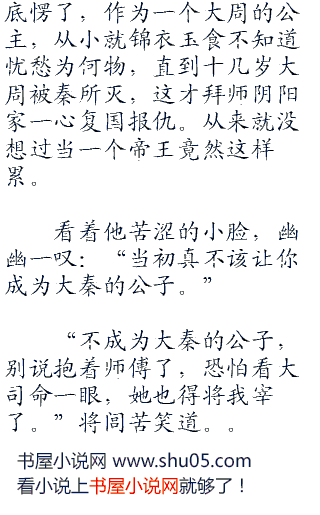 底愣了，作为一个大周的公
主，从小就锦衣玉食不知道
忧愁为何物，直到十几岁大
周被秦所灭，这才拜师阴阳
家一心复国报仇。从来就没
想过当一个帝王竟然这样
累。
看着他苦涩的小脸，幽
幽一叹：“当初真不该让你
成为大秦的公子。”
“不成为大秦的公子，
别说抱着师傅了，恐怕看大
司命一眼，她也得将我宰
了。”将闾苦笑道。。
书屋小说网 www.shu05.com
看小说上书屋小说网就够了！